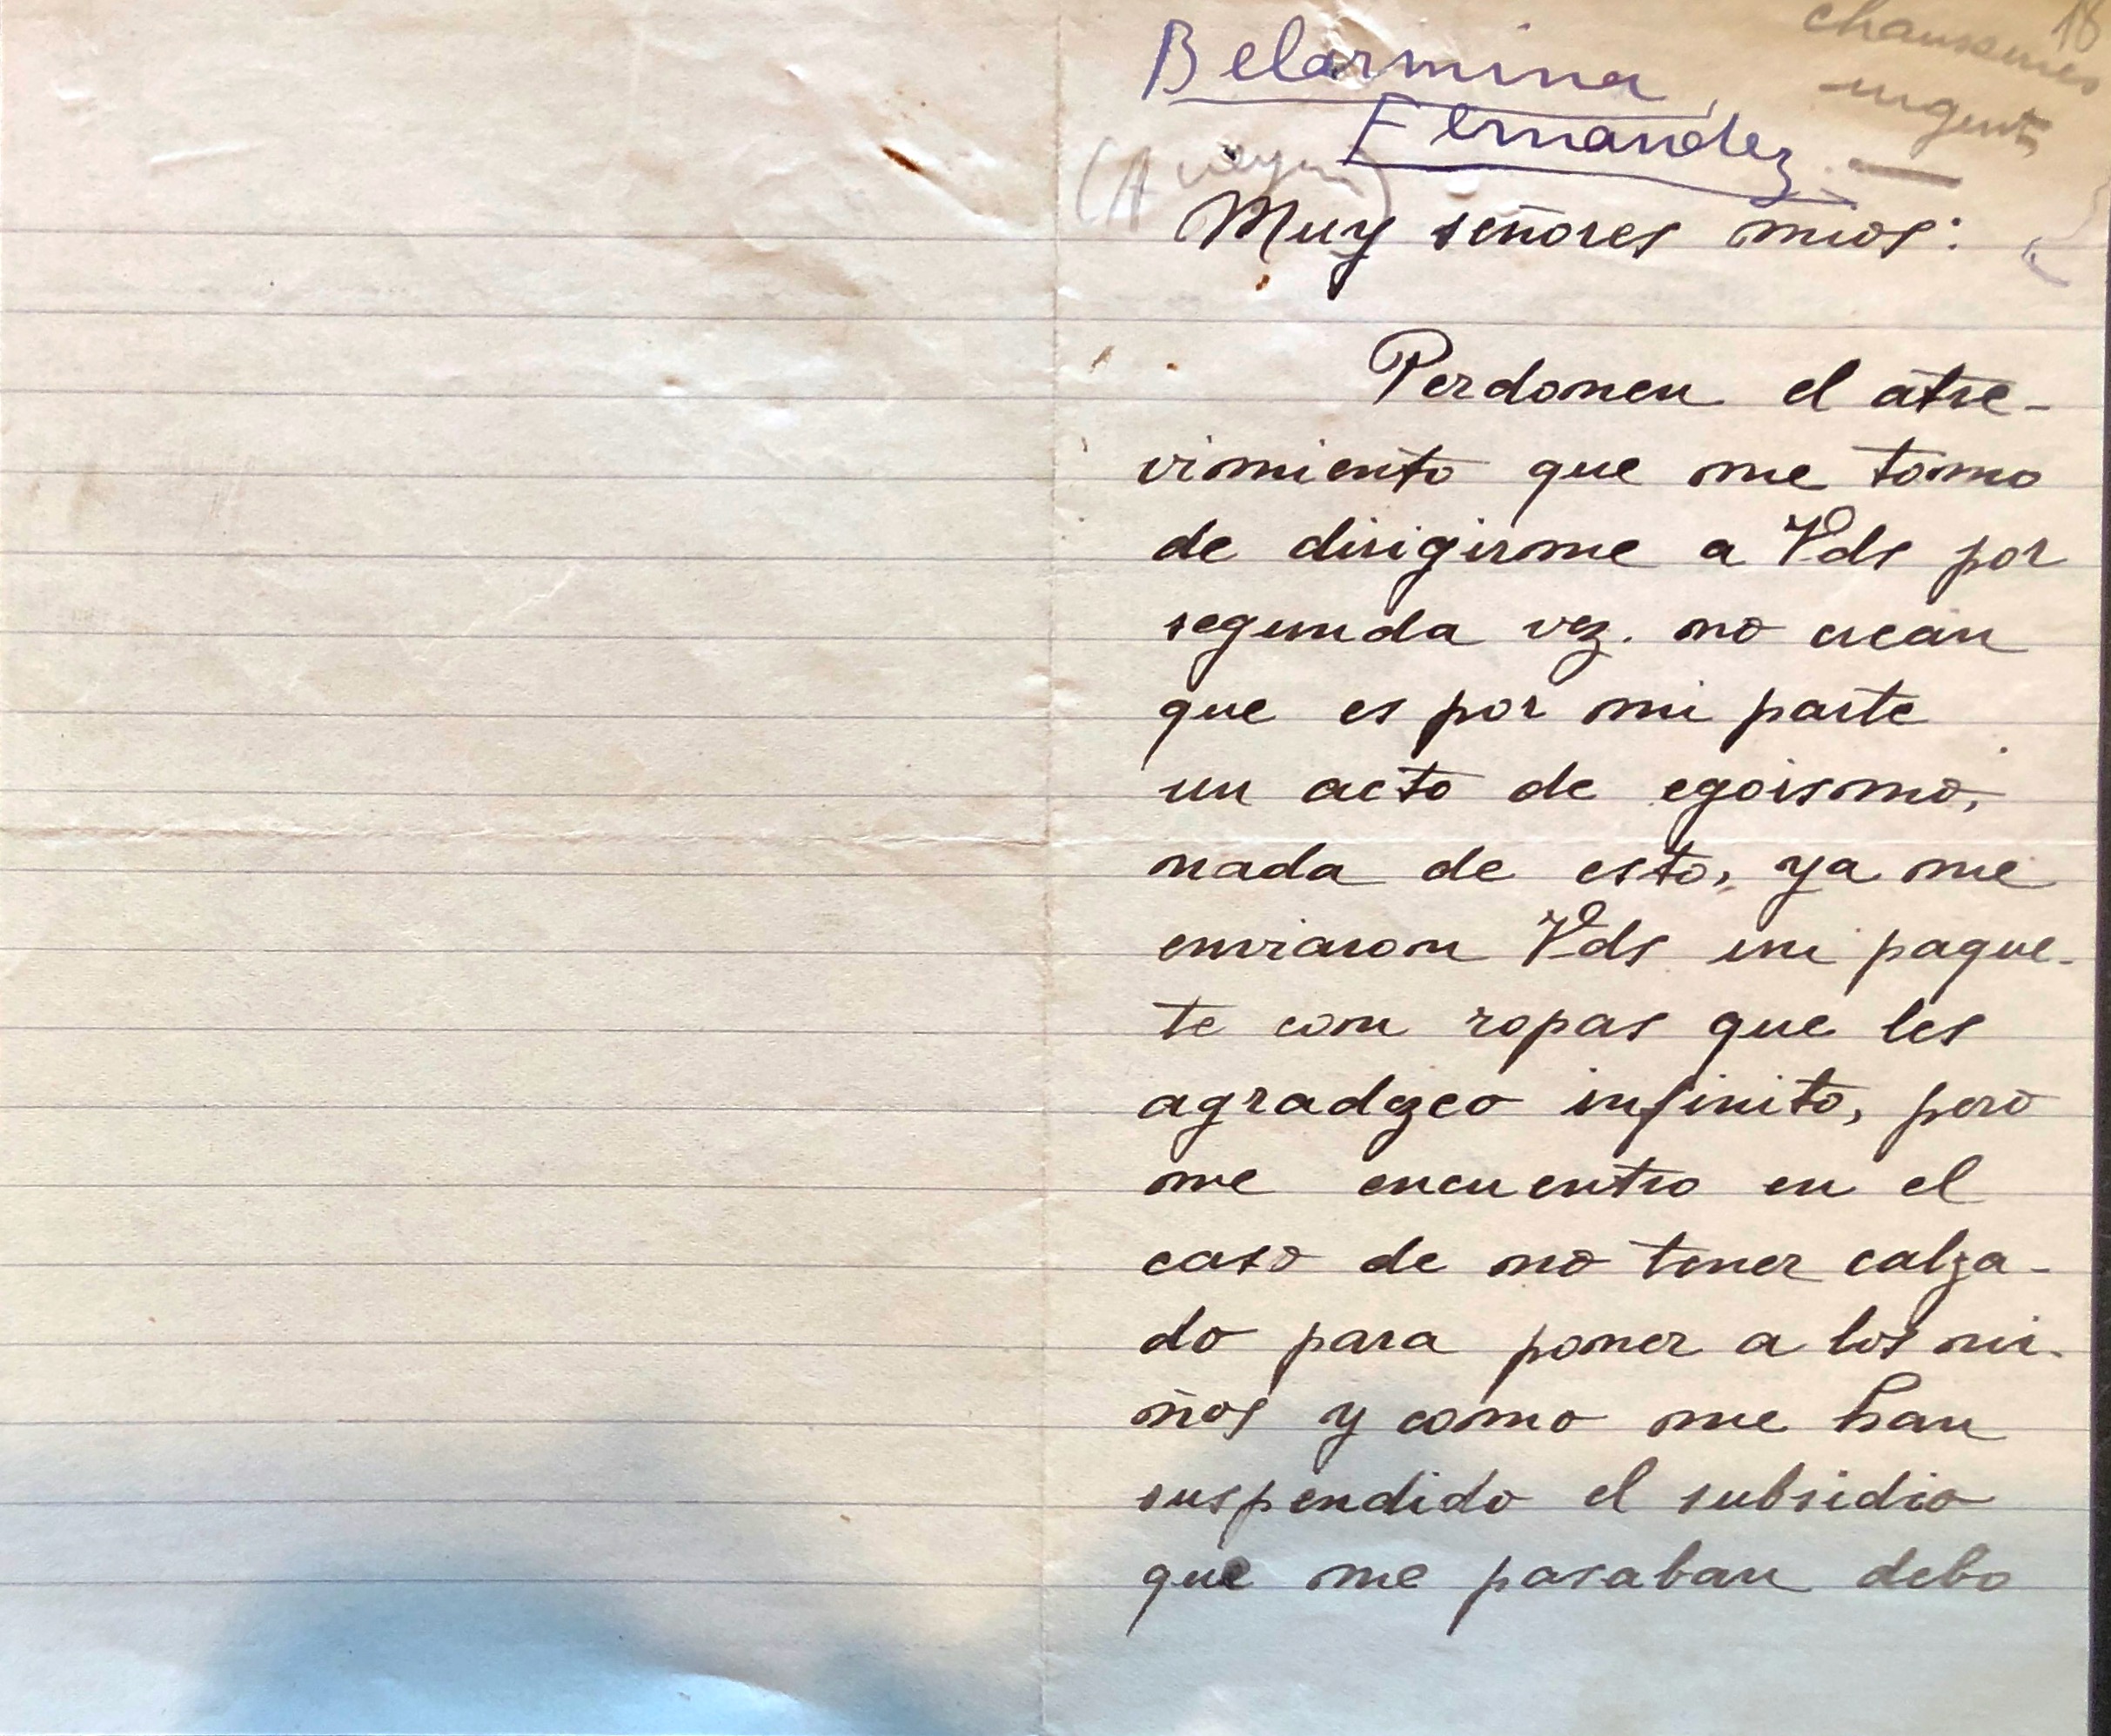 18
chaussures
urgent
Belarmina
Fernandez
(Aveyron)
Muy señores mios:
Perdonen el atre-
vimiento que me tomo
de dirigirme a Vds por
segunda vez. no crean
que es por mi parte
un acto de egoismo,
nada de esto, ya me
enviaron Vds un paque-
te con ropas que les
agradezco infinito, pero
me encuentro en el
caso de no tener calza-
do para poner a los ni-
ños y como me han
suspendido el subsidio
que me pasaban debo